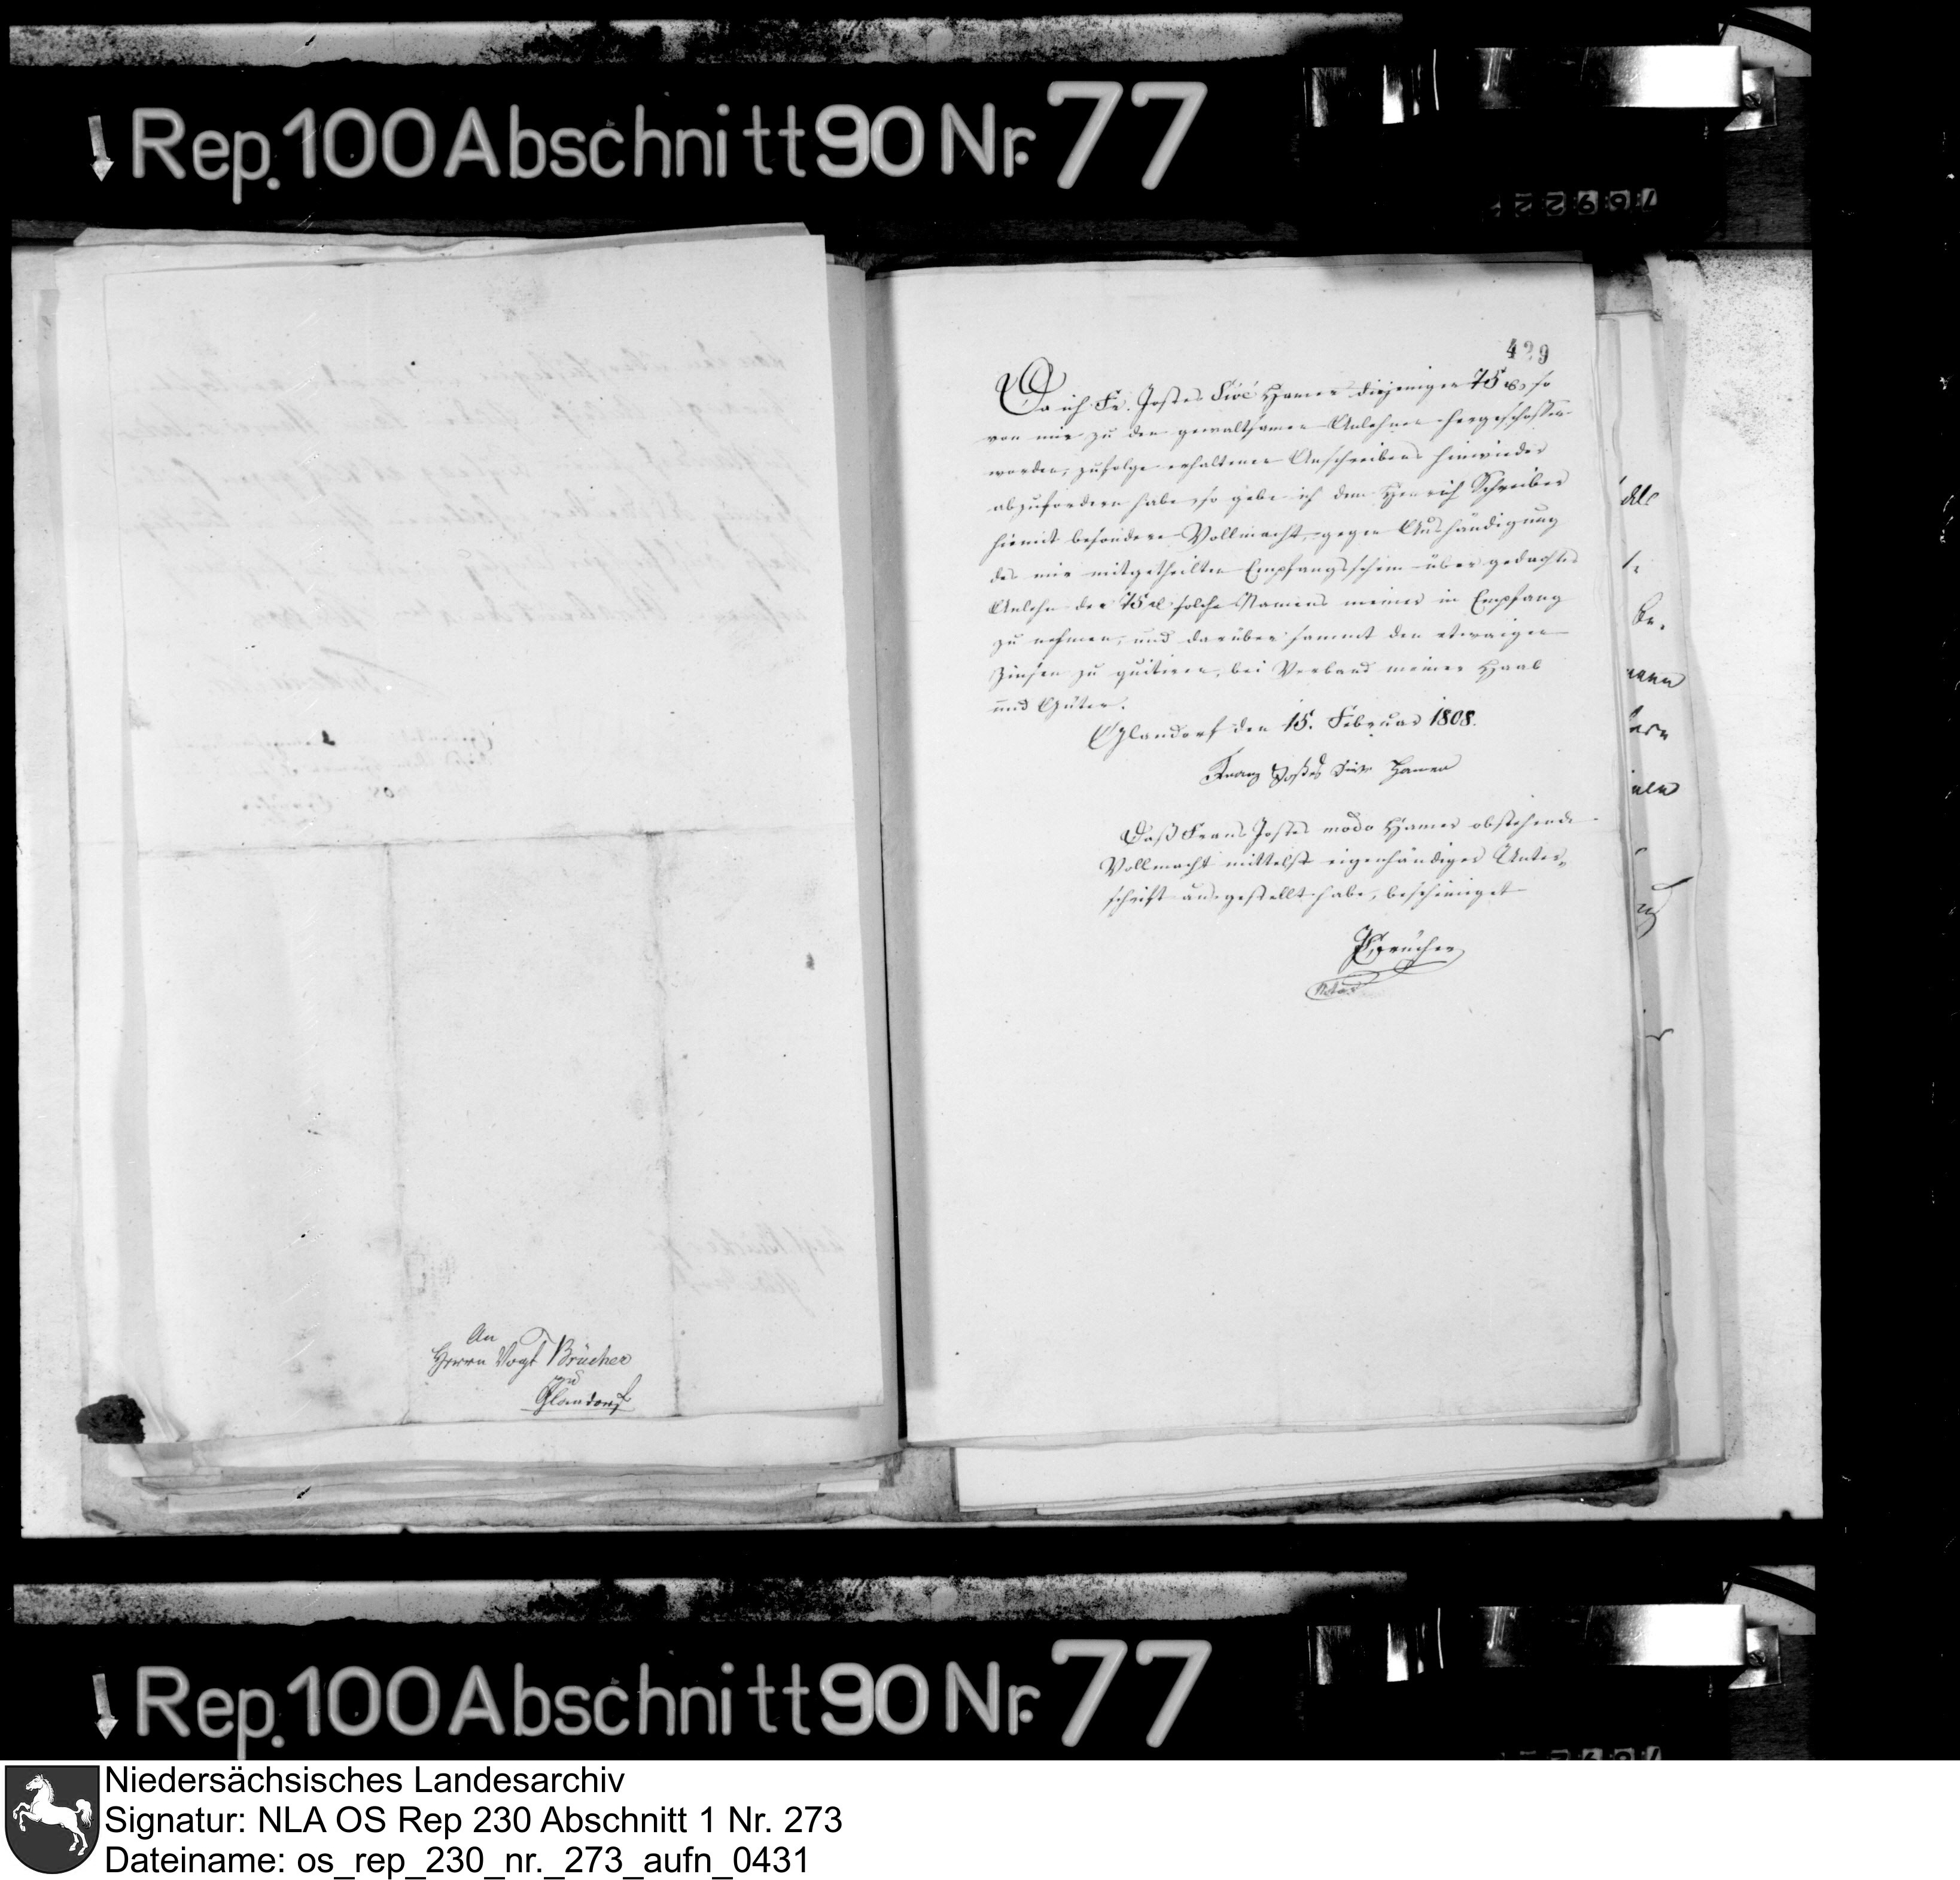 Rep. 100 Abschnitt 90 Nr. 77
An
Herrn Vogt Brücher
zu
Glandorf
429
Da ich Fr. Jostes sive Hamer diejenigen 75 rt, so
von mir zu den gewaltsamen Anlehnen hergeschossen
worden, zufolge erhaltenen Anschreibens hinwieder
abzufordern habe, so gebe ich dem Henrich Schreiber
hiemit besondere Vollmacht, gegen Aushändigung
des mir mitgetheilten Empfangschein über gedachtes
Anlehn der 75 rt solche Namens meiner in Empfang
zu nehmen, und darüber sammt den etwaigen
Zinsen zu quitiren, bei Verband meiner Haab
und Güter.
Glandorf den 15. Februar 1808.
Franz Jostes sive Hamer
Daß Frans Jostes modo Hamer obstehende
Vollmacht mittelst eigenhändiger Unter-
schrift ausgestellt habe, bescheiniget
Brücher
Rep. 100 Abschnitt 90 Nr. 77
Niedersächsisches Landesarchiv
Signatur: NLA OS Rep 230 Abschnitt 1 Nr. 273
Dateiname: os_rep_230_nr._273_aufn_0431